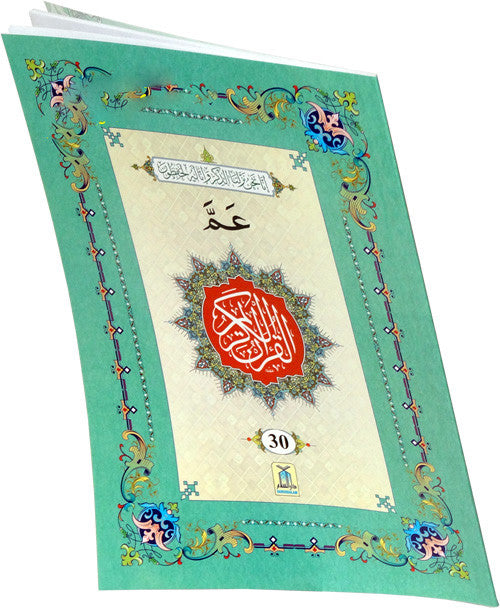 إنا نحن نزلنا الذكر وإنا له لحافظون
عَمَّ
القرآن الكريم
30
DARUSSALAM